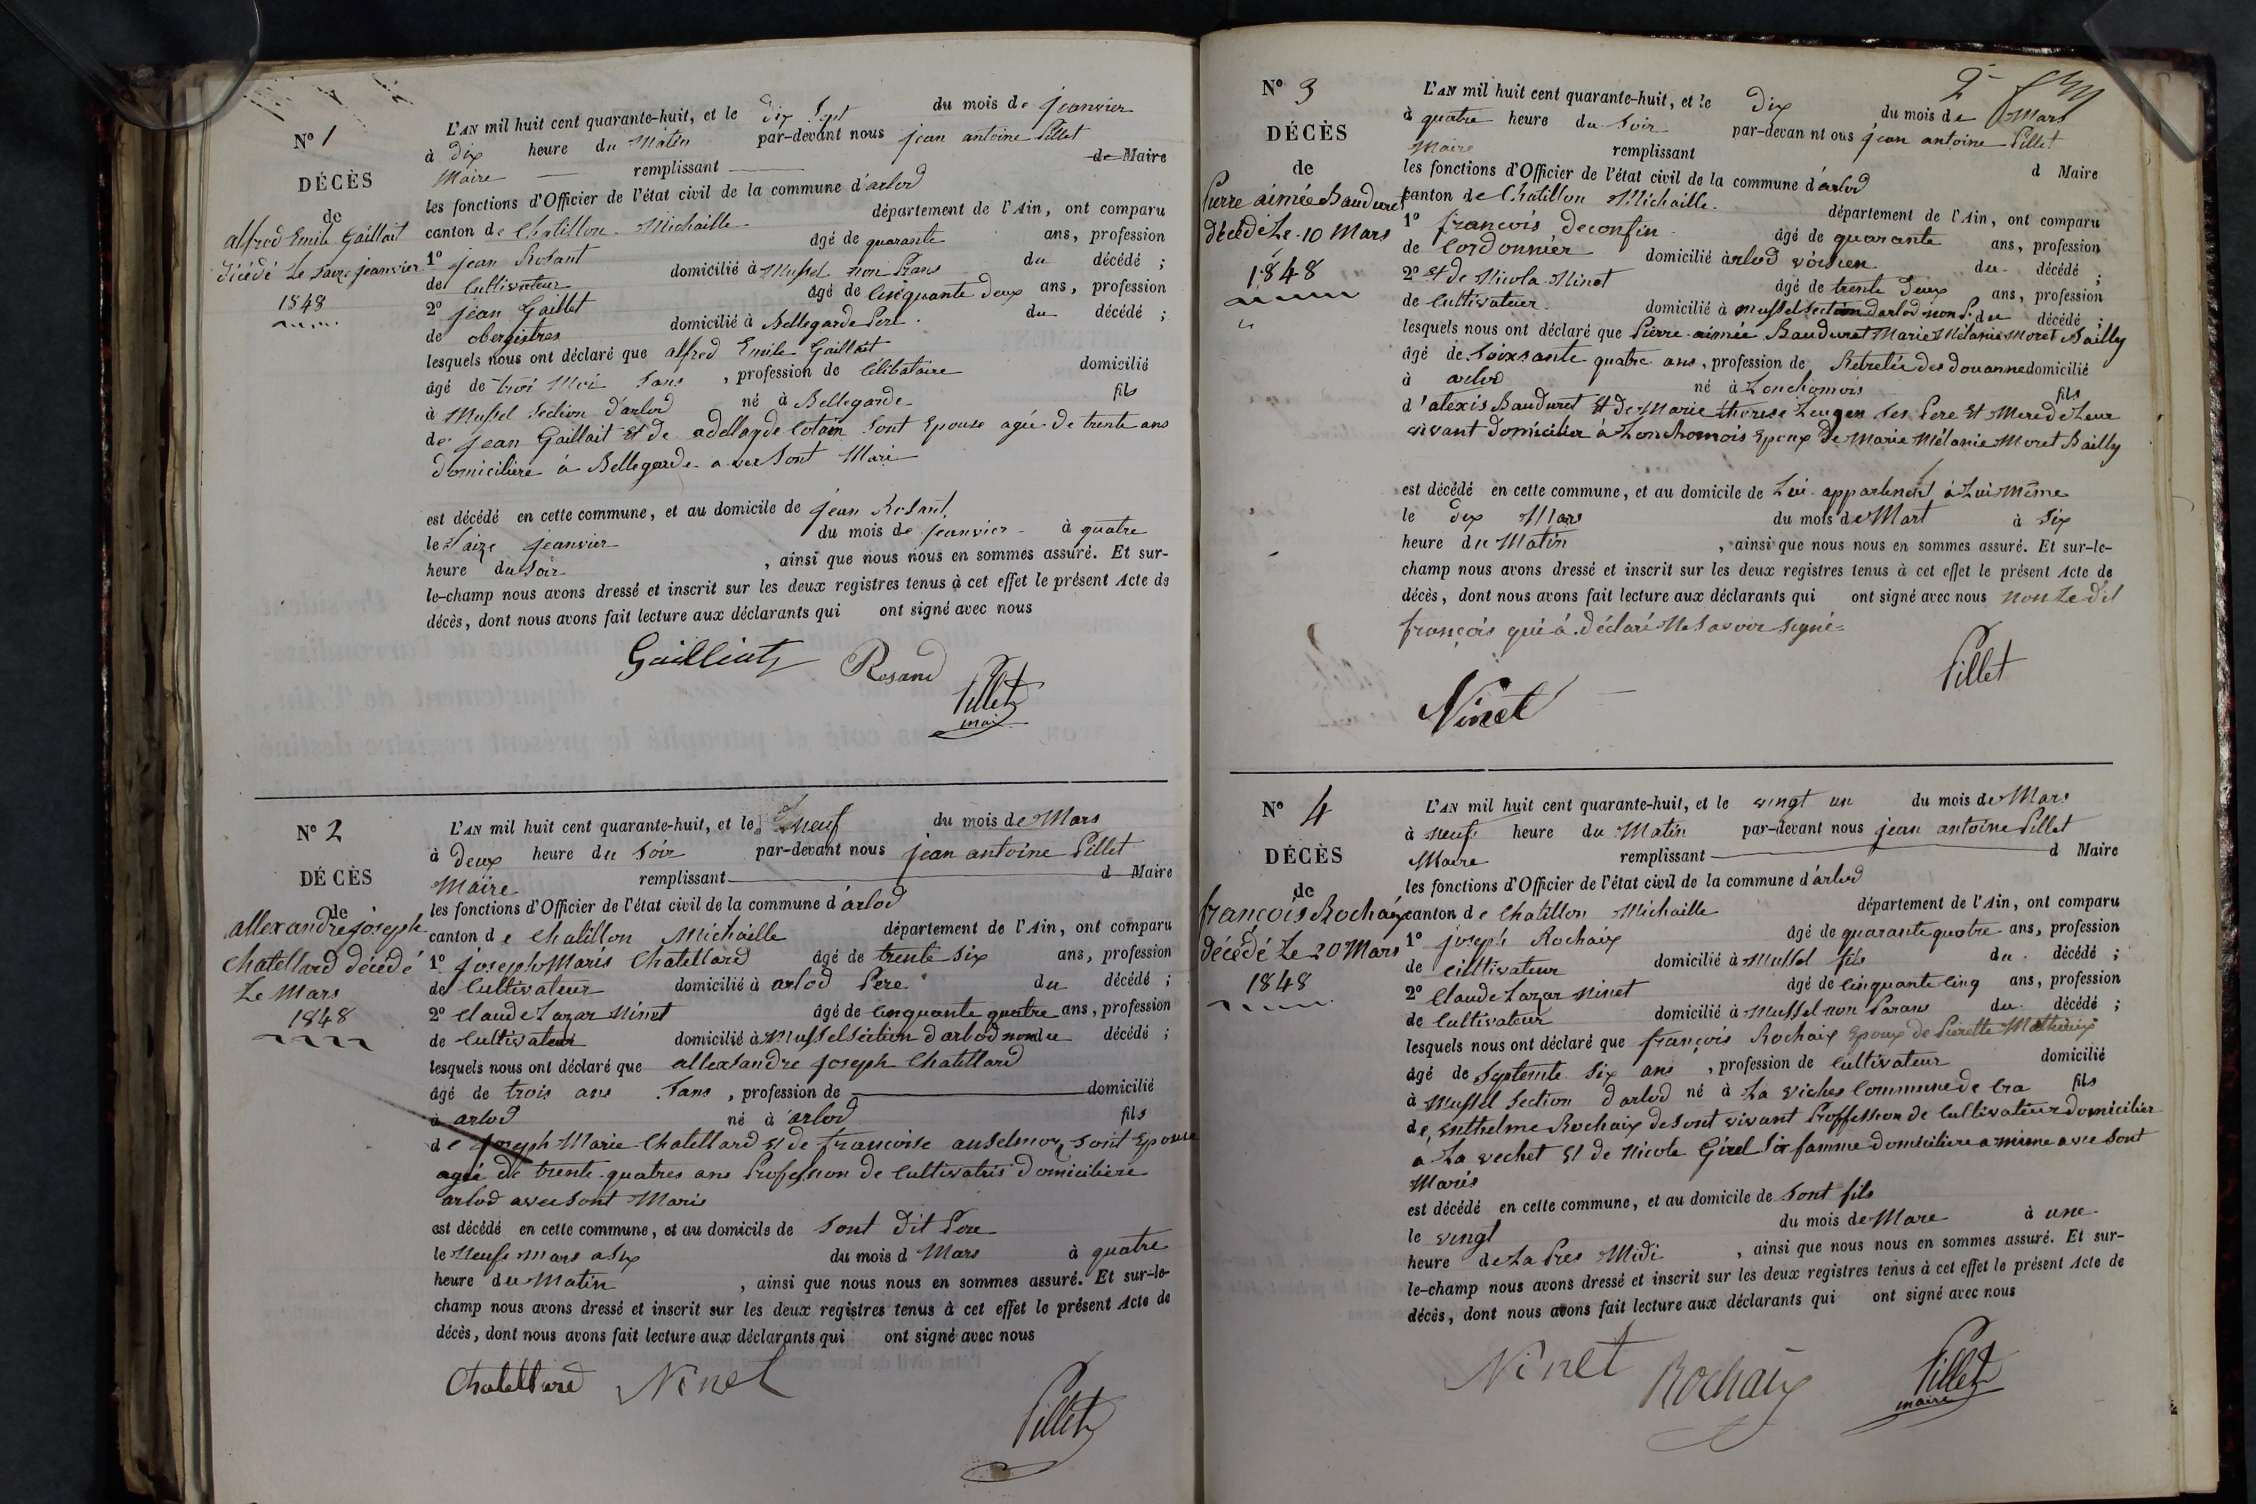 N° 1
DÉCÈS
de
alfred Emile Gaillait
décédé Le Saize jeanvier
1848
L'AN mil huit cent quarante-huit, et le dix Sept du mois de jeanvier
à dix heure du Matin par-devant nous jean antoine Pillet
Maire remplissant de Maire
les fonctions d'Officier de l'état civil de la commune d'arlod
canton de Chatillon Michaille département de l'Ain, ont comparu
1° jean Rosant âgé de quarante ans, profession
de Cultivateur domicilié à Mussel non Parans du décédé ;
2° jean Gaillet âgé de Cinquante deux ans, profession
de obergistres domicilié à Bellegarde Pere du décédé ;
lesquels nous ont déclaré que alfred Emile Gaillait
âgé de troi Moi Sans , profession de Célibataire domicilié
à Mussel Section d'arlod né à Bellegarde fils
de jean Gaillait Et de adellayde Cotain Sont Epouse agée de trente ans
domicilière à Bellegarde avec Sont Mari
est décédé en cette commune, et au domicile de jean Rosant
le Saize jeanvier du mois de jeanvier à quatre
heure du Soir , ainsi que nous nous en sommes assuré. Et sur-
le-champ nous avons dressé et inscrit sur les deux registres tenus à cet effet le présent Acte de
décès, dont nous avons fait lecture aux déclarants qui ont signé avec nous
Gailliat Rosand
Pillet
maire
N° 2
DÉCÈS
de
allexandre joseph
Chatellard décédé
Le Mars
1848
L'AN mil huit cent quarante-huit, et le neuf du mois de Mars
à deux heure du Soir par-devant nous jean antoine Pillet
Maire remplissant d Maire
les fonctions d'Officier de l'état civil de la commune d'arlod
canton de Chatillon Michaille département de l'Ain, ont comparu
1° joseph Maris Chatellard âgé de trente Six ans, profession
de Cultivateur domicilié à arlod Pere du décédé ;
2° Claude Lazar Ninet âgé de Cinquante quatre ans, profession
de Cultivateur domicilié à Mussel Section d'arlod non du décédé ;
lesquels nous ont déclaré que allexsandre joseph Chatellard
âgé de trois ans Sans , profession de domicilié
à arlod né à arlod fils
de joseph Marie Chatellard Et de francoise anselmoz Sont Epouse
agée de trente quatres ans Profession de Cultivatris domiciliere
arlod avec Sont Maris
est décédé en cette commune, et au domicile de Sont dit Pere
le Neufe mars a Six du mois d Mars à quatre
heure du Matin , ainsi que nous nous en sommes assuré. Et sur-le-
champ nous avons dressé et inscrit sur les deux registres tenus à cet effet le présent Acte de
décès, dont nous avons fait lecture aux déclarants qui ont signé avec nous
Chatellard Ninet
Pillet
2
N° 3
DÉCÈS
de
Pierre aimée Bauduret
décédé Le 10 Mars
1848
L'AN mil huit cent quarante-huit, et le Dix du mois de Mars
à quatre heure du Soir par-devan nt ous jean antoine Pillet
Maire remplissant d Maire
les fonctions d'Officier de l'état civil de la commune d'arlod
canton de Chatillon Michaille département de l'Ain, ont comparu
1° francois deconfin âgé de quarante ans, profession
de Cordonnier domicilié à arlod voisien du décédé ;
2° Et de Nicola Ninet âgé de trente deux ans, profession
de Cultivateur domicilié à mussel Section d'arlod non P. du décédé ;
lesquels nous ont déclaré que Pierre aimée Bauduret Marie Mélanie Moret Bailly
âgé de Soixsante quatre ans, profession de Retretée des douanne domicilié
à arlod né à Lonchomois fils
d'alexis Bauduret Et de Marie therese Ses Pere Et Mere de Leur
vivant domicilier à Lonchomois Epoux de Marie Mélanie Moret Bailly
est décédé en cette commune, et au domicile de Lui appartenent à Lui Même
le dix Mars du mois de Mart à Six
heure du Matin , ainsi que nous nous en sommes assuré. Et sur-le-
champ nous avons dressé et inscrit sur les deux registres tenus à cet effet le présent Acte de
décès, dont nous avons fait lecture aux déclarants qui ont signé avec nous non Le dit
françois qui à déclaré Ne Savoir Signé
Pillet
Ninet
N° 4
DÉCÈS
de
françois Rochaix
décédé Le 20 Mars
1848
L'AN mil huit cent quarante-huit, et le vingt un du mois de Mars
à neufe heure du Matin par-devant nous jean antoine Pillet
Maire remplissant d Maire
les fonctions d'Officier de l'état civil de la commune d'arlod
canton de Chatillon Michaille département de l'Ain, ont comparu
1° joseph Rochaix âgé de quarante quatre ans, profession
de Cultivateur domicilié à Mussel fils du décédé ;
2° Claude Lazar Ninet âgé de Cinquante Cinq ans, profession
de Cultivateur domicilié à Mussel non Parans du décédé ;
lesquels nous ont déclaré que françois Rochaix Epoux de Pierette Mathieux
âgé de Septente Six ans , profession de Cultivateur domicilié
à Mussel Section d'arlod né à La viches Commune de Cra fils
de enthelme Rochaix de Sont vivant Proffession de Cultivateur domicilier
a La vechet Et de Nicole Girel Sa famme domiciliere a mime avec Sont
Maris
est décédé en cette commune, et au domicile de Sont fils
le vingt du mois de Mare à une
heure de La Pres Midi , ainsi que nous nous en sommes assuré. Et sur-
le-champ nous avons dressé et inscrit sur les deux registres tenus à cet effet le présent Acte de
décès, dont nous avons fait lecture aux déclarants qui ont signé avec nous
Ninet Rochaix Pillet
maire